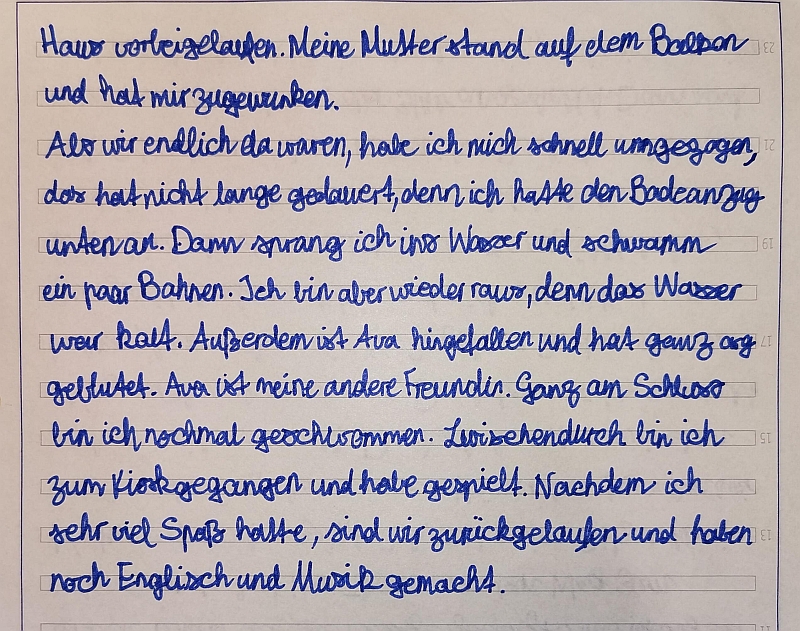 Haus vorbeigelaufen. Meine Mutter stand auf dem Balkon
und hat mir zugewunken.
Als wir endlich da waren, habe ich mich schnell umgezogen,
das hat nicht lange gedauert, denn ich hatte den Badeanzug
unten an. Dann sprang ich ins Wasser und schwamm
ein paar Bahnen. Ich bin aber wieder raus, denn das Wasser
war kalt. Außerdem ist Ava hingefallen und hat ganz arg
geblutet. Ava ist meine andere Freundin. Ganz am Schluss
bin ich nochmal geschwommen. Zwischendurch bin ich
zum Kiosk gegangen und habe gespielt. Nachdem ich
sehr viel Spaß hatte, sind wir zurückgelaufen und haben
noch Englisch und Musik gemacht.